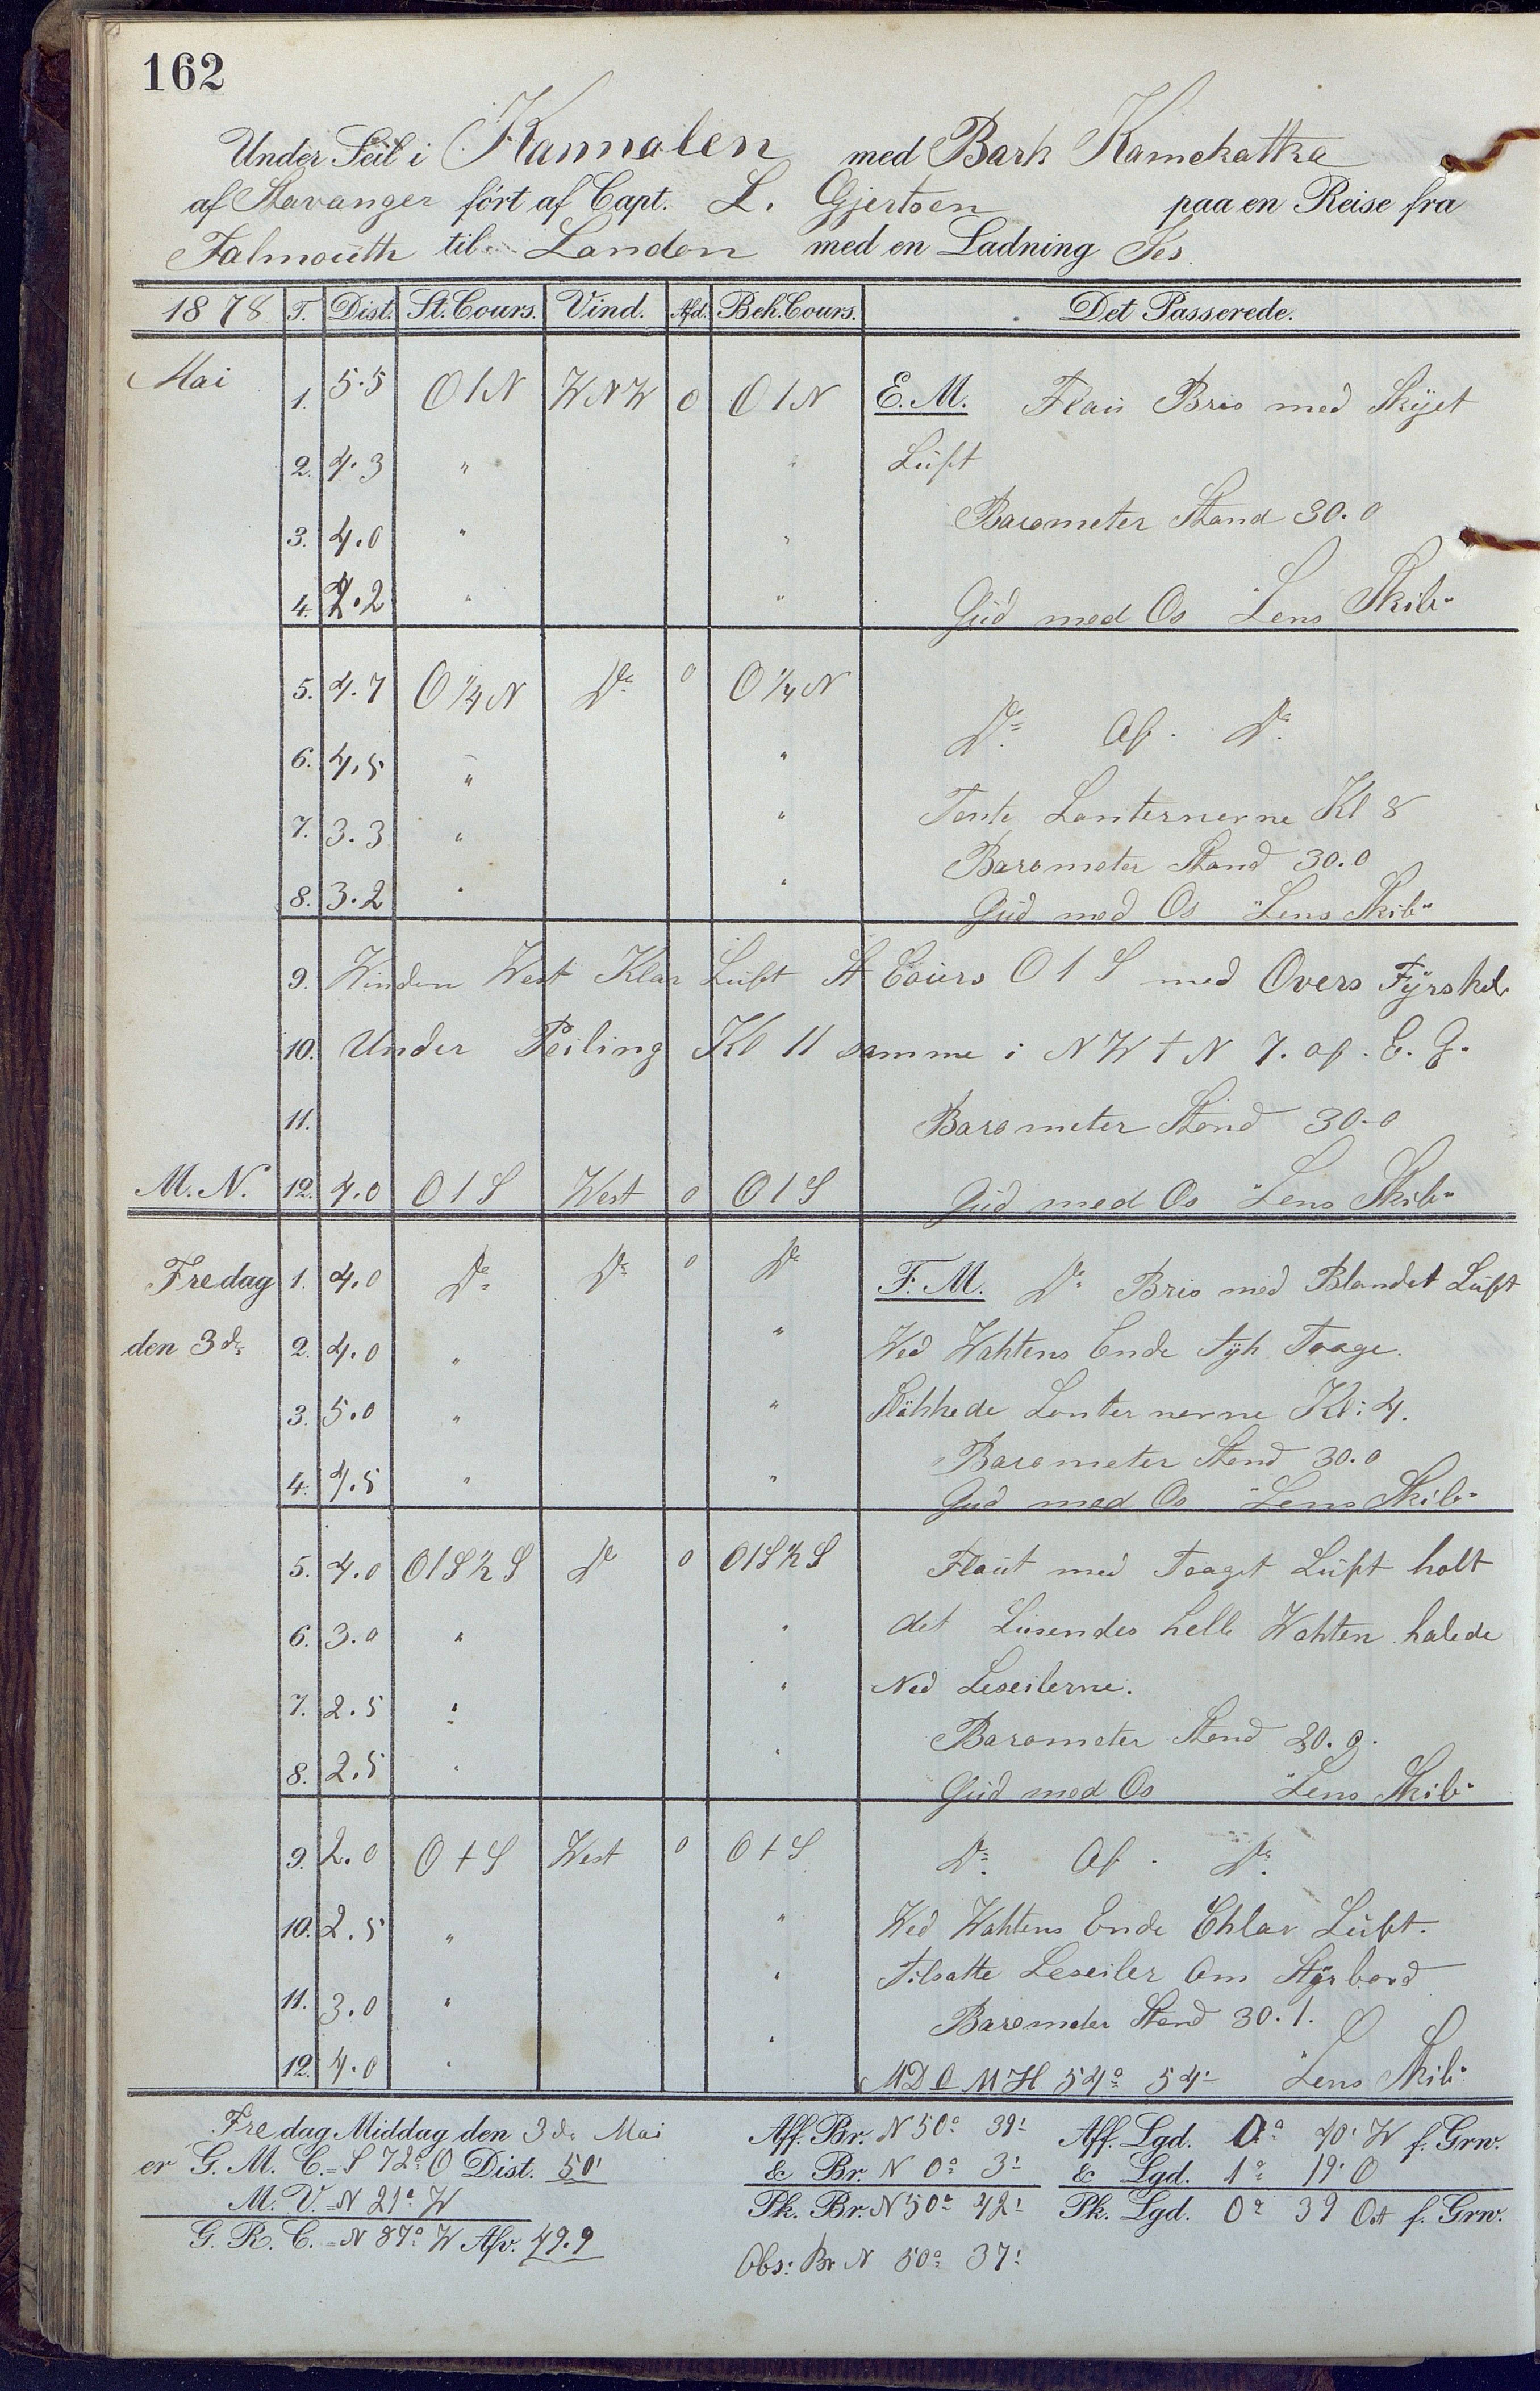 162
Under Seil i Kannalen med Bark Kamckattka
af Stavanger ført af Capt. L. Gjertsen paa en Reise fra
Falmouth til London med en Ladning Ies.
1878 T. Dist. St. Cours. Vind. Afd. Beh. Cours. Det Passerede.
Mai 1. 5.5 O 1 N W N W 0 O 1 N E. M. Flau Bris med Skyet
2. 4.3 " " Luft
3. 4.0 " " Barometer Stand 30.0
4. 4.2 " " Gud med Os "Lens Skib"
5. 4.7 O 1/4 N Do 0 O 1/4 N
6. 4.5 " " Do. Af. Do.
7. 3.3 " " Tente Lanternerne Kl 8
Barometer Stand 30.0
8. 3.2 " " Gud med Os "Lens Skib"
9. Vinden West Klar Luft St Cours O 1 S med Overs Fyrskib
10. Under Peiling Kl 11 samme i N W t N 7. af. E. G.
11. Barometer Stand 30.0
M. N. 12. 4.0 O 1 S West 0 O 1 S Gud med Os "Lens Skib"
Fredag 1. 4.0 Do Do 0 Do F. M. Do Bris med Blandet Luft
den 3de 2. 4.0 " " Wed Wahtens Ende tyk Taage.
3. 5.0 " " Sløkkede Lanternerne Kl: 4.
Barometer Stand 30.0
4. 4.5 " " Gud med Os "Lens Skib"
5. 4.0 O 1 S 1/2 S Do 0 O 1 S 1/2 S Flaut med Taaget Luft holt
6. 3.0 " " det Lusendes helle Wahten halede
7. 2.5 " " Ned Leseilerne.
Barometer Stand 30.0.
8. 2.5 " " Gud med Os "Lens Skib"
9. 2.0 O t S West 0 O t S Do. Af. Do.
10. 2.5 " " Wed Wahtens Ende Chlar Luft.
11. 3.0 " " Tilsatte Leseiler Om Styrbord
Barometer Stand 30.1.
12. 4.0 " " M D O M H 54° 54' "Lens Skib"
Fredag Middag den 3de Mai Aff. Br. N 50° 39' Aff. Lgd. 0° 40' W f. Grw.
er G. M. C. = S 72° O Dist. 50' & Br. N 0° 3' & Lgd. 1° 19' O
M. V. = N 21° W Pk. Br. N 50° 42' Pk. Lgd. 0° 39 Ost f. Grw.
G. R. C. = N 87° W Afv. 49.9
Obs: Br N 50° 37'